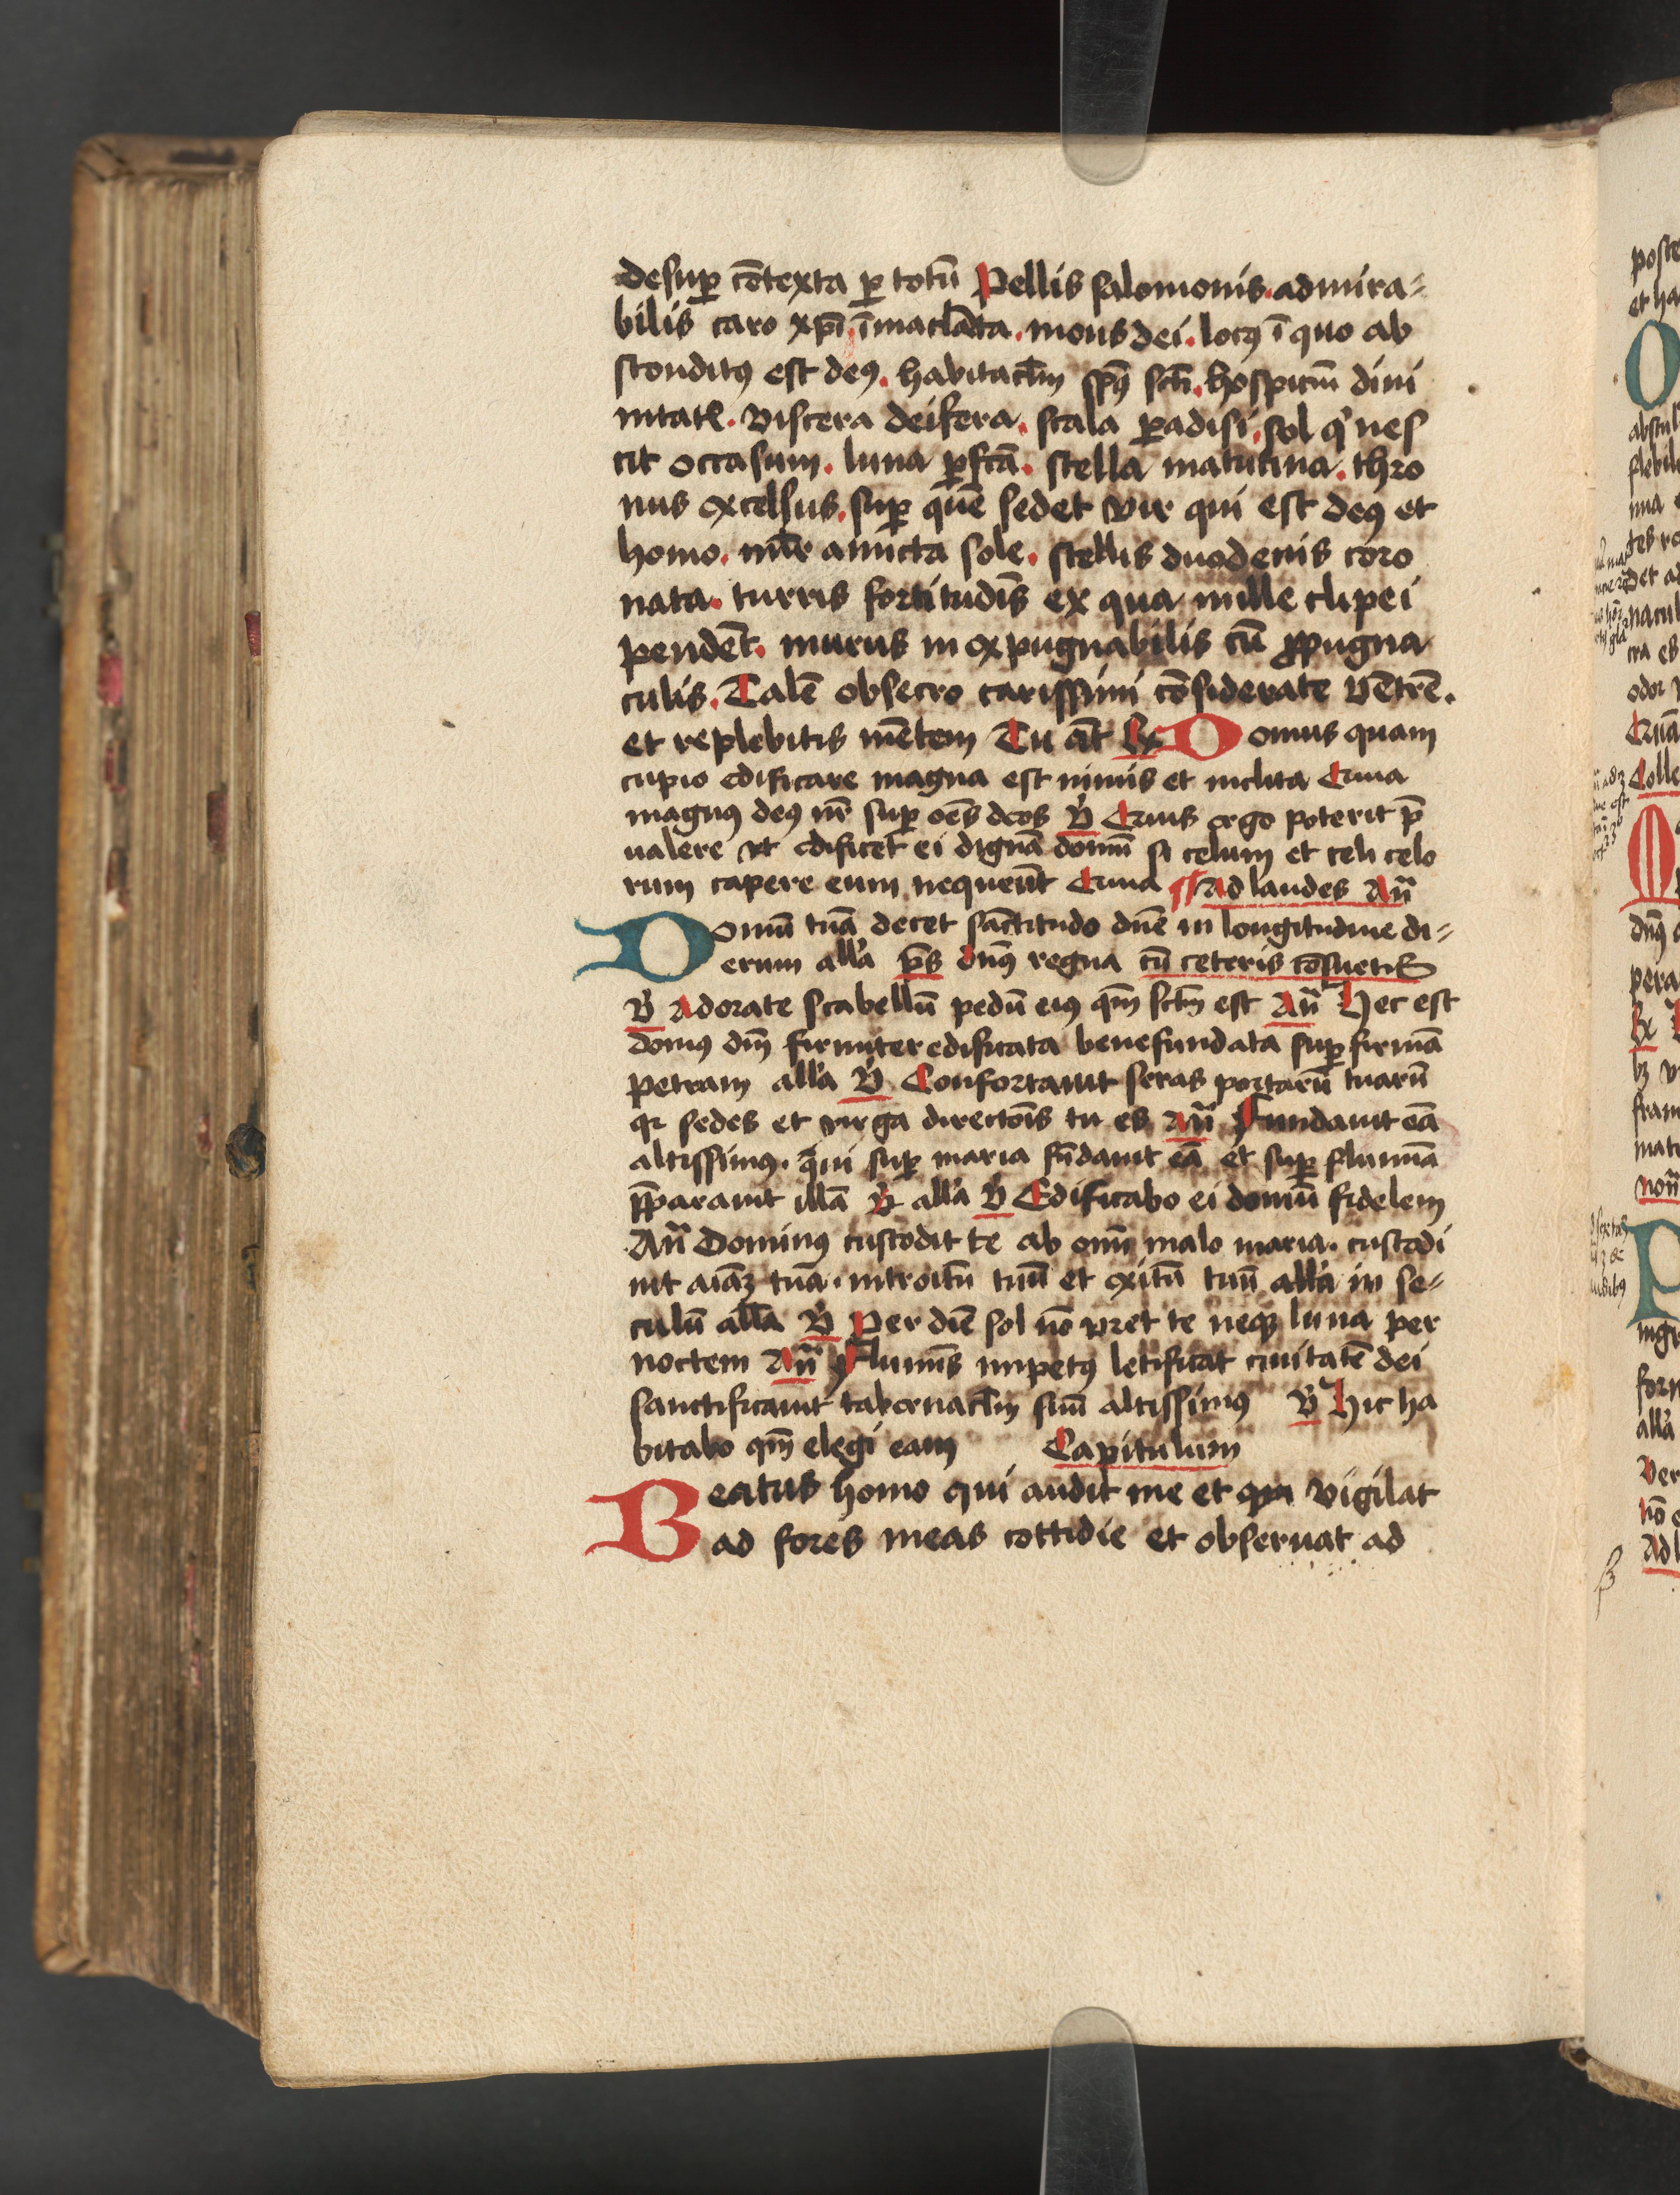 desuꝑ cōtexta ꝑ totū Pellis salomonis. admira⸗
bilis caro xp̄i īmaclāta. mons dei. locꝯ ī quo ab
sconditꝯ est deꝯ. habitacl̄m spūs sct̄i. hospiciū diui
nitatꝭ. viscera deifera. scala ꝑadisi. sol qͥ nes
cit occasum. luna ꝑfcā. stella matutina. thro
nus excelsus. suꝑ quē sedet vir qui est deꝯ et
homo. mlr̄ amicta sole. stellis duodenis coro
nata. turris fortitudīs ex qua mille clipei
pendēt. murus in expugnabilis cū ꝓpugna
culis. Talē obsecro carissimi cōsiderate vētrē.
et replebitis mētem Tu āt Rx Domus quam
cupio edificare magna est nimis et inclita Quia
magnꝯ deꝯ nr̄ suꝑ oēs deos V̓ Quis ergo poterit p̄
ualere vt edificet ei dignā domū si celum et celi celo
rum capere eum nequeūt Quia Ad laudes An̄
Domū tuā decet sāctitudo dn̄e in longitudine di⸗
erum all'a p̄s dn̄s regna cū ceteris cōsuetis
V̓ Adorate scabellū pedū eiꝯ qm̄ sctm̄ est An̄ Hec est
domꝯ dn̄i firmiter edificata benefundata suꝑ firmā
petram all'a V̓ Confortauit seras portarū tuarū
qꝛ sedes et virga directōis tu es An̄ Fundauit eā
altissimꝯ. qui suꝑ maria fūdauit eā et suꝑ flumīa
p̄parauit illā R̓ all'a V̓ Edificabo ei domū fidelem
An̄ Dominꝯ custodit te ab omī malo maria. custodi
uit aīaꝫ tuā. introitū tuū et exitū tuū all'a in se⸗
culū all'a V̓ Per diē sol nō vret te neqꝫ luna per
noctem An̄ Flumīs impetꝯ letificat ciuitatē dei
sanctificauit tabernacl̄m suū altissimꝯ V̓ Hic ha
bitabo qm̄ elegi eam Capitulum
Beatus homo qui audit me et qui vigilat
ad fores meas cottidie et obseruat ad